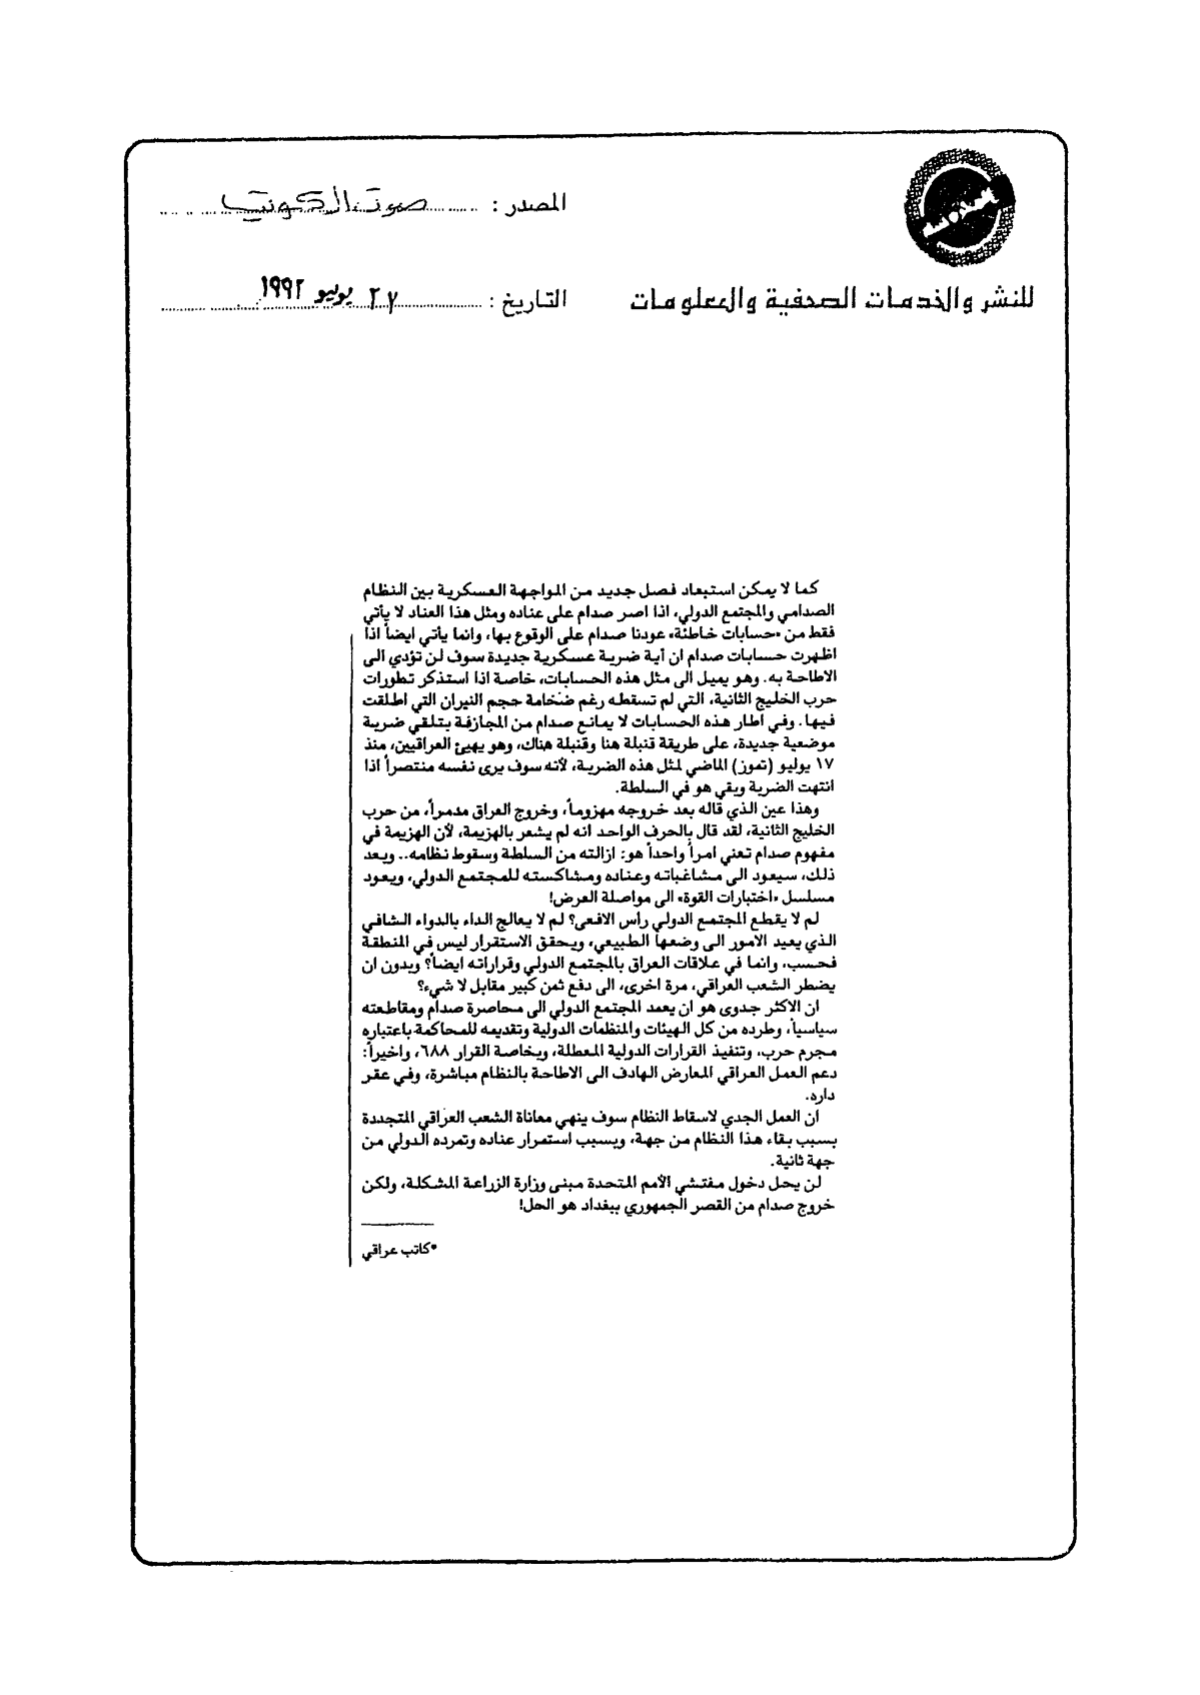 المصدر : صوت الكويت
للنشر والخدمات الصحفية والمعلومات
التاريخ : ٢٧ يوليو ١٩٩٢
كما لا يمكن استبعاد فصل جديد من المواجهة العسكرية بين النظام
الصدامي والمجتمع الدولي، اذا اصر صدام على عناده ومثل هذا العناد لا يأتي
فقط من «حسابات خاطئة» عودنا صدام على الوقوع بها، وانما يأتي ايضاً اذا
اظهرت حسابات صدام ان أية ضربة عسكرية جديدة سوف لن تؤدي الى
الاطاحة به. وهو يميل الى مثل هذه الحسابات، خاصة اذا استذكر تطورات
حرب الخليج الثانية، التي لم تسقطه رغم ضخامة حجم النيران التي اطلقت
فيها. وفي اطار هذه الحسابات لا يمانع صدام من المجازفة بتلقي ضربة
موضعية جديدة، على طريقة قنبلة هنا وقنبلة هناك، وهو يهيئ العراقيين، منذ
١٧ يوليو (تموز) الماضي لمثل هذه الضربة، لأنه سوف يرى نفسه منتصراً اذا
انتهت الضربة وبقي هو في السلطة.
وهذا عين الذي قاله بعد خروجه مهزوماً، وخروج العراق مدمراً، من حرب
الخليج الثانية، لقد قال بالحرف الواحد انه لم يشعر بالهزيمة، لأن الهزيمة في
مفهوم صدام تعني امراً واحداً هو: ازالته من السلطة وسقوط نظامه.. وبعد
ذلك، سيعود الى مشاغباته وعناده ومشاكسته للمجتمع الدولي، ويعود
مسلسل «اختبارات القوة» الى مواصلة العرض!
لم لا يقطع المجتمع الدولي رأس الافعى؟ لم لا يعالج الداء بالدواء الشافي
الذي يعيد الامور الى وضعها الطبيعي، ويحقق الاستقرار ليس في المنطقة
فحسب، وانما في علاقات العراق بالمجتمع الدولي وقراراته ايضاً؟ وبدون ان
يضطر الشعب العراقي، مرة اخرى، الى دفع ثمن كبير مقابل لا شيء؟
ان الاكثر جدوى هو ان يعمد المجتمع الدولي الى محاصرة صدام ومقاطعته
سياسياً، وطرده من كل الهيئات والمنظمات الدولية وتقديمه للمحاكمة باعتباره
مجرم حرب، وتنفيذ القرارات الدولية المعطلة، وبخاصة القرار ٦٨٨، واخيراً:
دعم العمل العراقي المعارض الهادف الى الاطاحة بالنظام مباشرة، وفي عقر
داره.
ان العمل الجدي لاسقاط النظام سوف ينهي معاناة الشعب العراقي المتجددة
بسبب بقاء هذا النظام من جهة، وبسبب استمرار عناده وتمرده الدولي من
جهة ثانية.
لن يحل دخول مفتشي الأمم المتحدة مبنى وزارة الزراعة المشكلة، ولكن
خروج صدام من القصر الجمهوري ببغداد هو الحل!
*كاتب عراقي